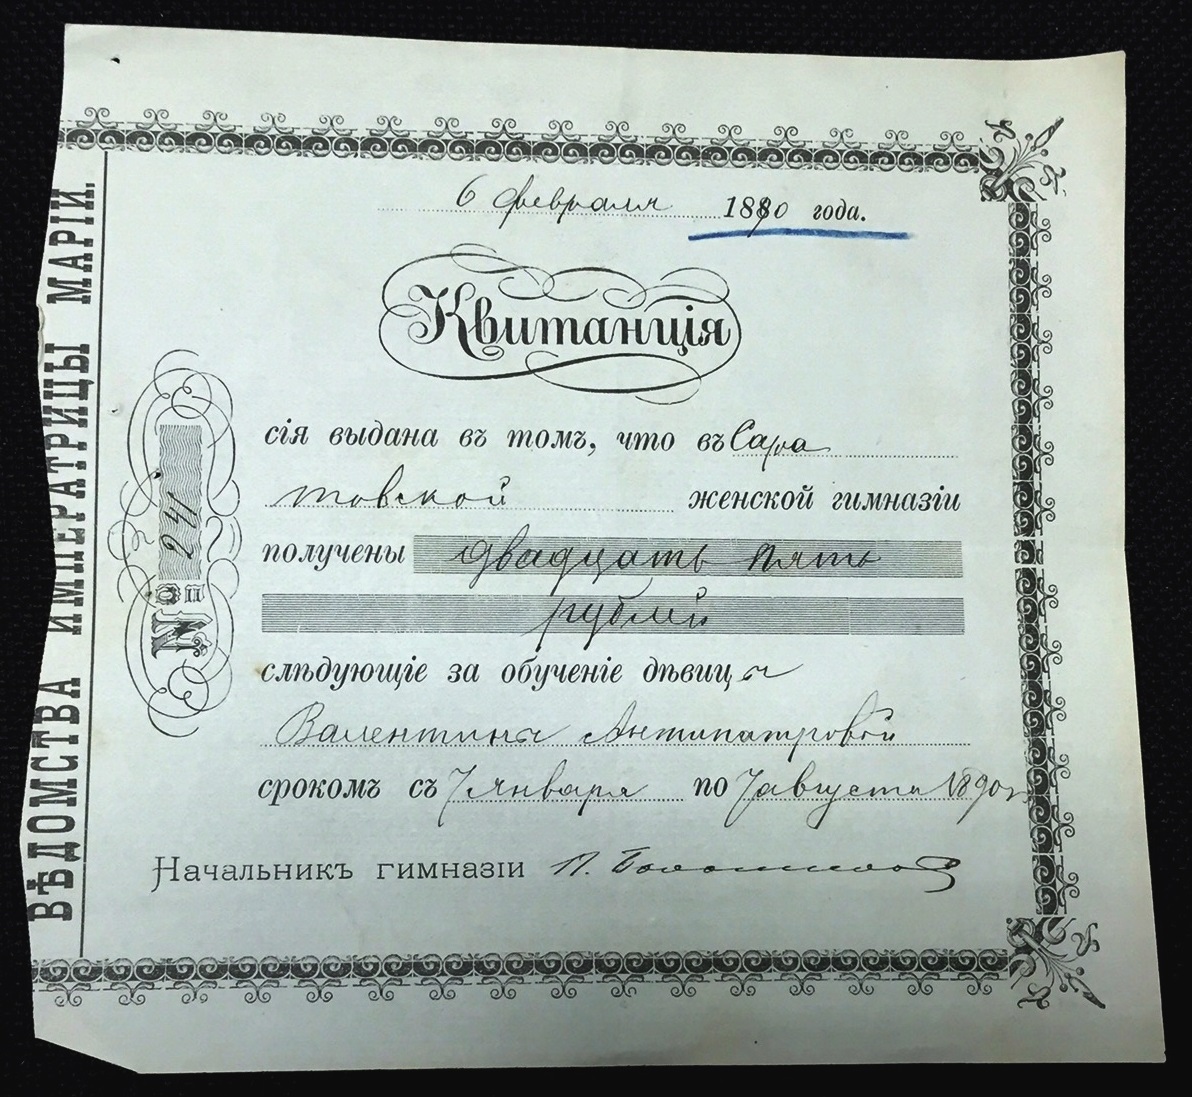 ВѢДОМСТВА ИМПЕРАТРИЦЫ МАРІИ.
№ 241
6 февраля 1890 года.
Квитанція
сія выдана въ томъ, что въ Сара
товской женской гимназіи
получены двадцать пять
рублей
слѣдующіе за обученіе дѣвицы
Валентины Антипатровой
срокомъ съ 7 января по 7 августа 1890 г.
Начальникъ гимназіи П.